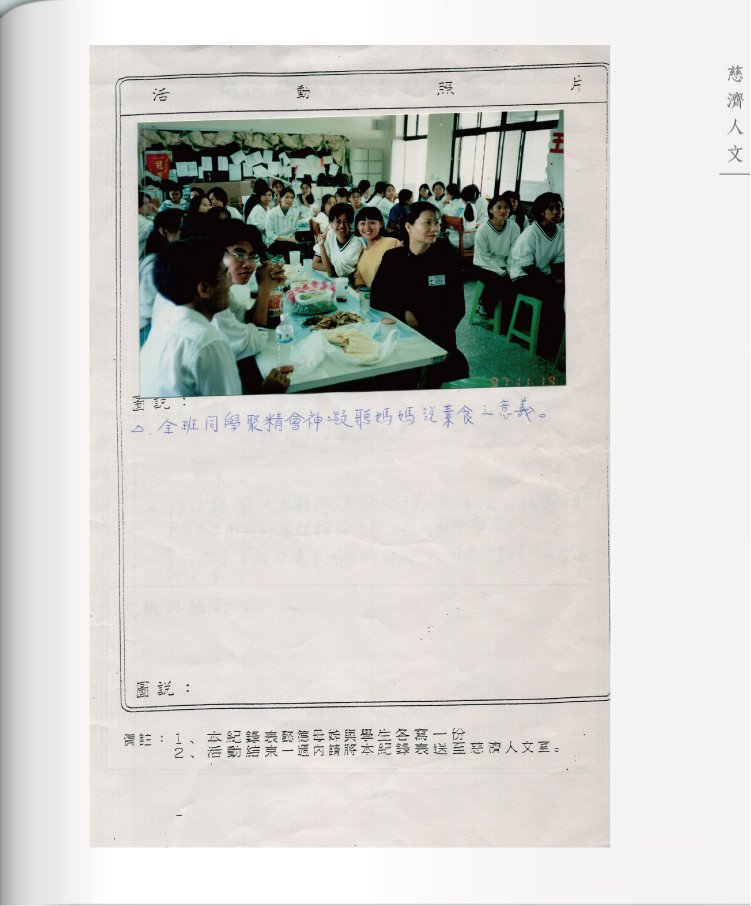 慈濟人文
活動照片
冠
五
87 11 19
圖説：
△. 全班同學聚精會神凝聽媽媽說素食之意義。
圖説：
備註：1、本紀錄表懿德母姊與學生各寫一份
2、活動結束一週內請將本紀錄表送至慈濟人文室。